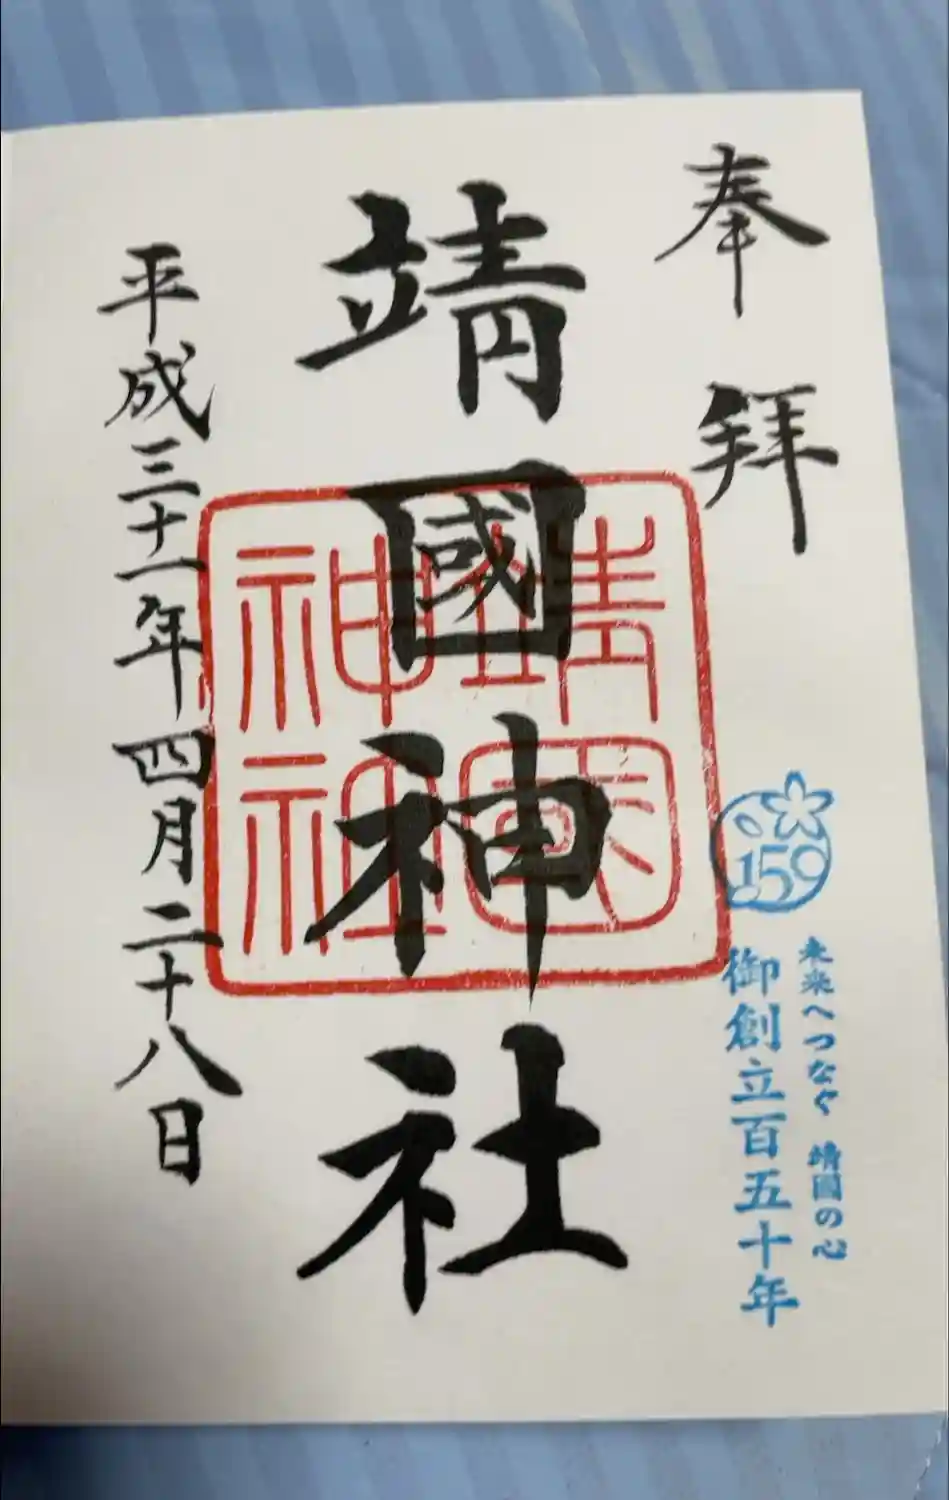 奉拝
150
未来へつなぐ 靖國の心
御創立百五十年
靖國神社
靖國神社
平成三十一年四月二十八日